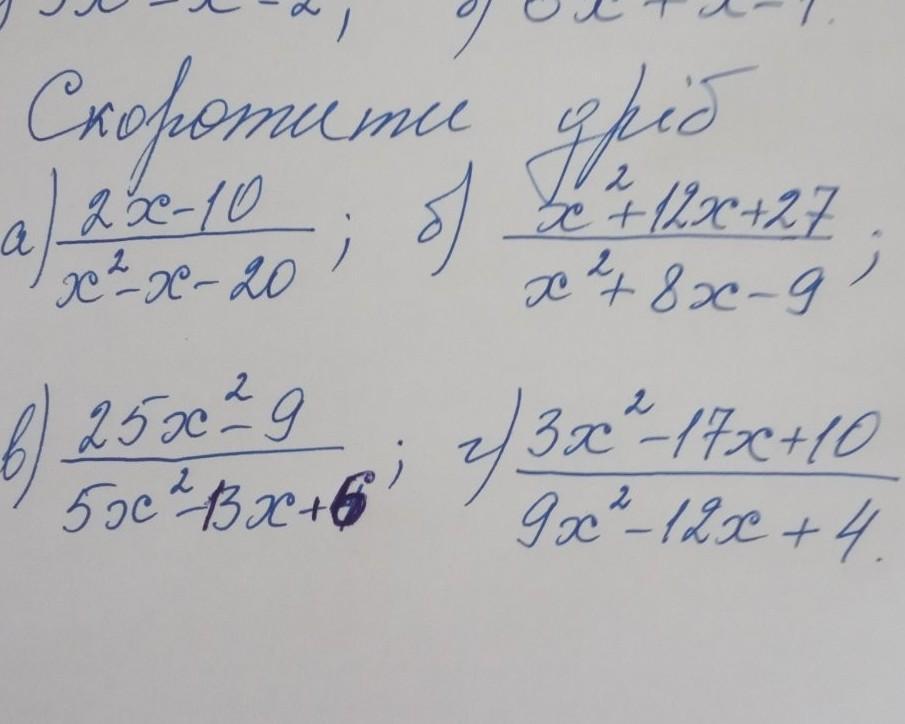 Скоротити дріб
а) (2x-10)/(x²-x-20); б) (x²+12x+27)/(x²+8x-9);
в) (25x²-9)/(5x²-13x+6); г) (3x²-17x+10)/(9x²-12x+4).